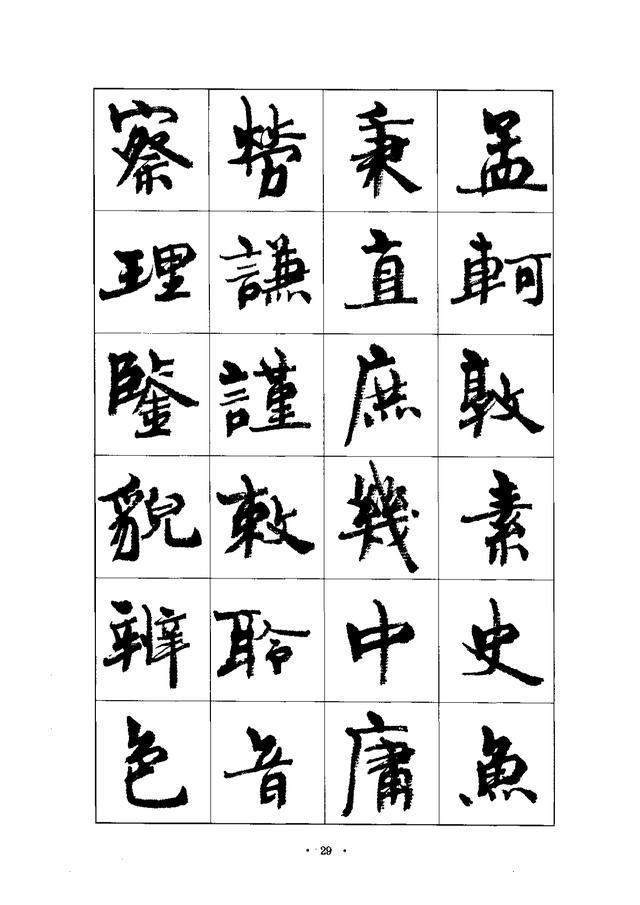 孟軻敦素史魚
秉直庶幾中庸
勞謙謹敕聆音
察理鑒貌辨色
· 29 ·